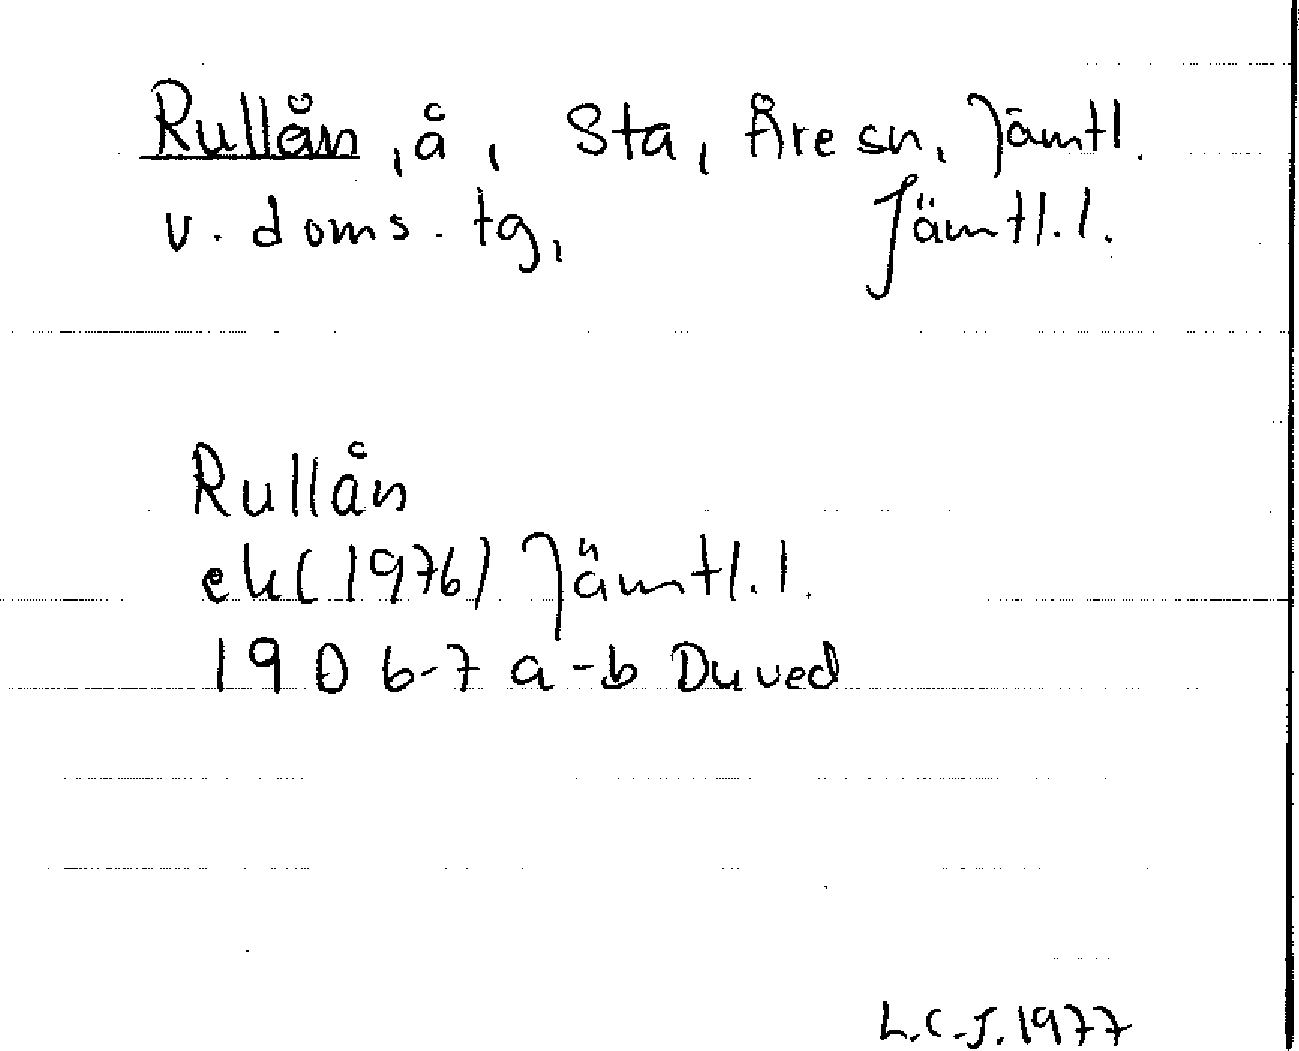 Rullån, å, Sta, Åre sn, Jämtl.
v. doms. tg, Jämtl. l.
Rullån
ek (1976) Jämtl. l.
19 D 6-7 a-b Duved
L.C-J. 1977